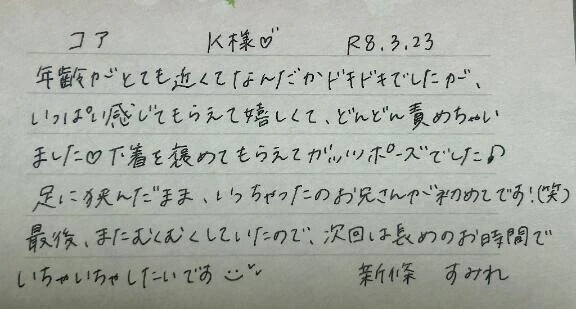 コア K様♡ R8.3.23
年齢がとても近くてなんだかドキドキでしたが、
いっぱい感じてもらえて嬉しくて、どんどん責めちゃい
ました♡下着を褒めてもらえてガッツポーズでした♪
足に挟んだまま、いっちゃったのお兄さんが初めてです!(笑)
最後、またむくむくしていたので、次回は長めのお時間で
いちゃいちゃしたいです 新條 すみれ